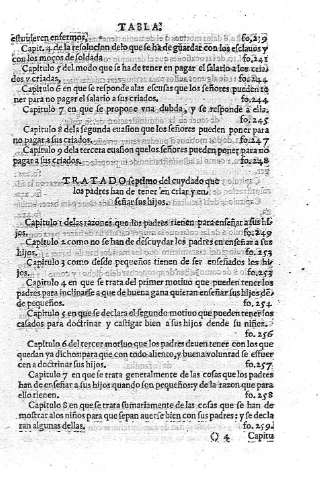 TABLA.
estuuieren enfermos, fo,239
Capit. 4 de la resolucion delo que se ha de guardar con los esclauos y
con los moços de soldada fo,241
Capitulo 5 del modo que se ha de tener en pagar el salario a los cria
dos y criadas, fo,244
Capitulo 6 en que se responde alas escusas que los señores pueden te
ner para no pagar el salario a sus criados. fo,244
Capitulo 7 en que se propone vna dubda, y se responde a ella.
fo,245
Capitulo 8 dela segunda euasion que los señores pueden poner para
no pagar a sus criados. fo,247
Capitulo 9 dela tercera euasion quelos señores pueden poner para no
pagar a sus criados. fo,248
TRATADO septimo del cuydado que
los padres han de tener en criar, y en
señar sus hijos.
Capitulo 1 delas razones que los padres tienen para enseñar a sus hi
jos. fo,249
Capitulo 2 como no se han de descuydar los padres en enseñar a sus
hijos. fo,253
Capitulo 3 como desde pequeños tienen de ser enseñados los hi
jos. fo,253
Capitulo 4 en que se trata del primer motiuo que pueden tener los
padres para inclinarse a que de buena gana quieran enseñar sus hijos des
de pequeños. fo, 254
Capitulo 5 en que se declara el segundo motiuo que pueden tener los
casados para doctrinar y castigar bien a sus hijos desde su niñez.
fo, 256
Capitulo 6 del tercer motiuo que los padres deuen tener con los que
quedan ya dichos para que con todo aliento, y buena voluntad se esfuer
cen a doctrinar sus hijos. fo,257
Capitulo 7 en que se trata generalmente de las cosas que los padres
han de enseñar a sus hijos quando son pequeños: y de la razon que para
ello tienen. fo, 258
Capitulo 8 en que se trata sumariamente de las cosas que se han de
mostrar alos niños para que sepan auerse bien con sus padres: y se decla
ran algunas dellas. fo, 259.
Q 4 Capitu